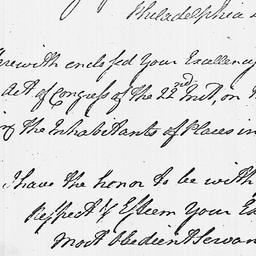 Philadelphia
Herewith enclosed Your Excellency
Act of Congress of the 22nd Inst, on
the Inhabitants of Places in
I have the honor to be with
Respect & Esteem Your Ex
Most Obedient Servan